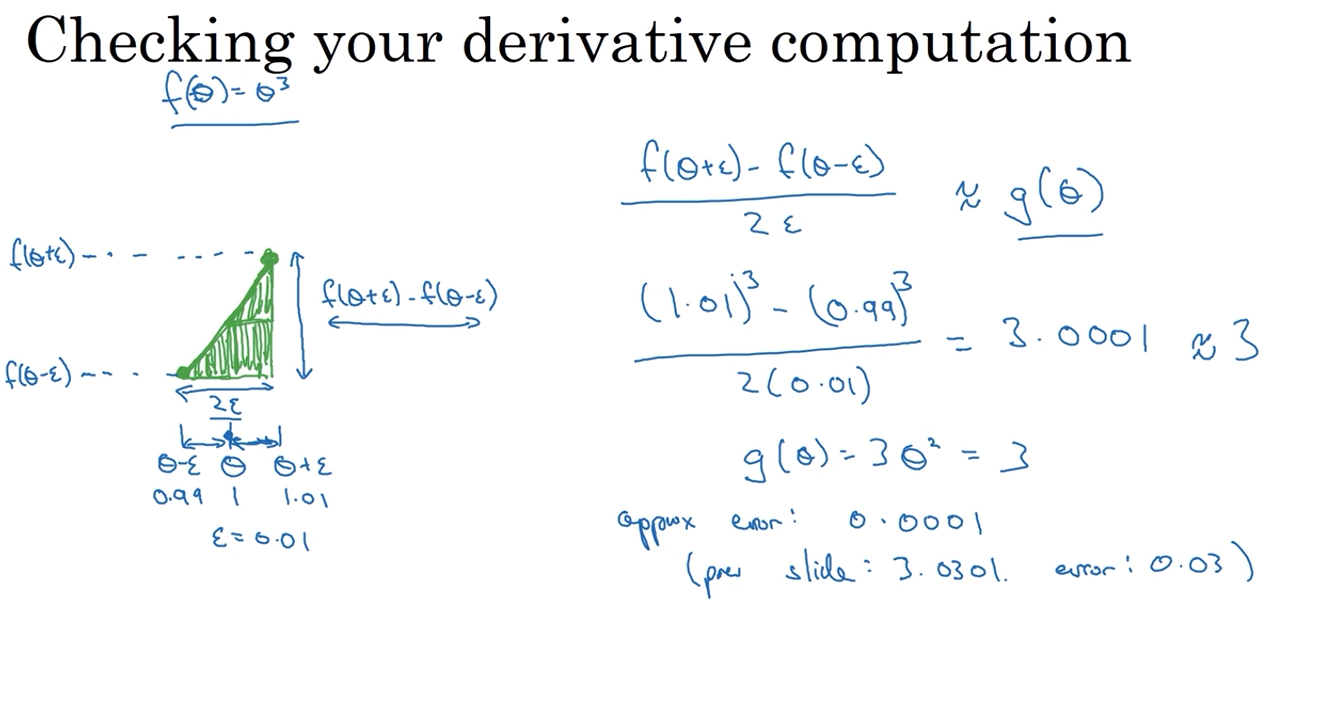 Checking your derivative computation
f(θ) = θ³
f(θ+ε) - f(θ-ε)
2ε
≈ g(θ)
f(θ+ε)
f(θ+ε) - f(θ-ε)
f(θ-ε)
2ε
θ-ε θ θ+ε
0.99 1 1.01
ε = 0.01
(1.01)³ - (0.99)³
2(0.01)
= 3.0001 ≈ 3
g(θ) = 3θ² = 3
approx error: 0.0001
(prev slide: 3.0301. error: 0.03)